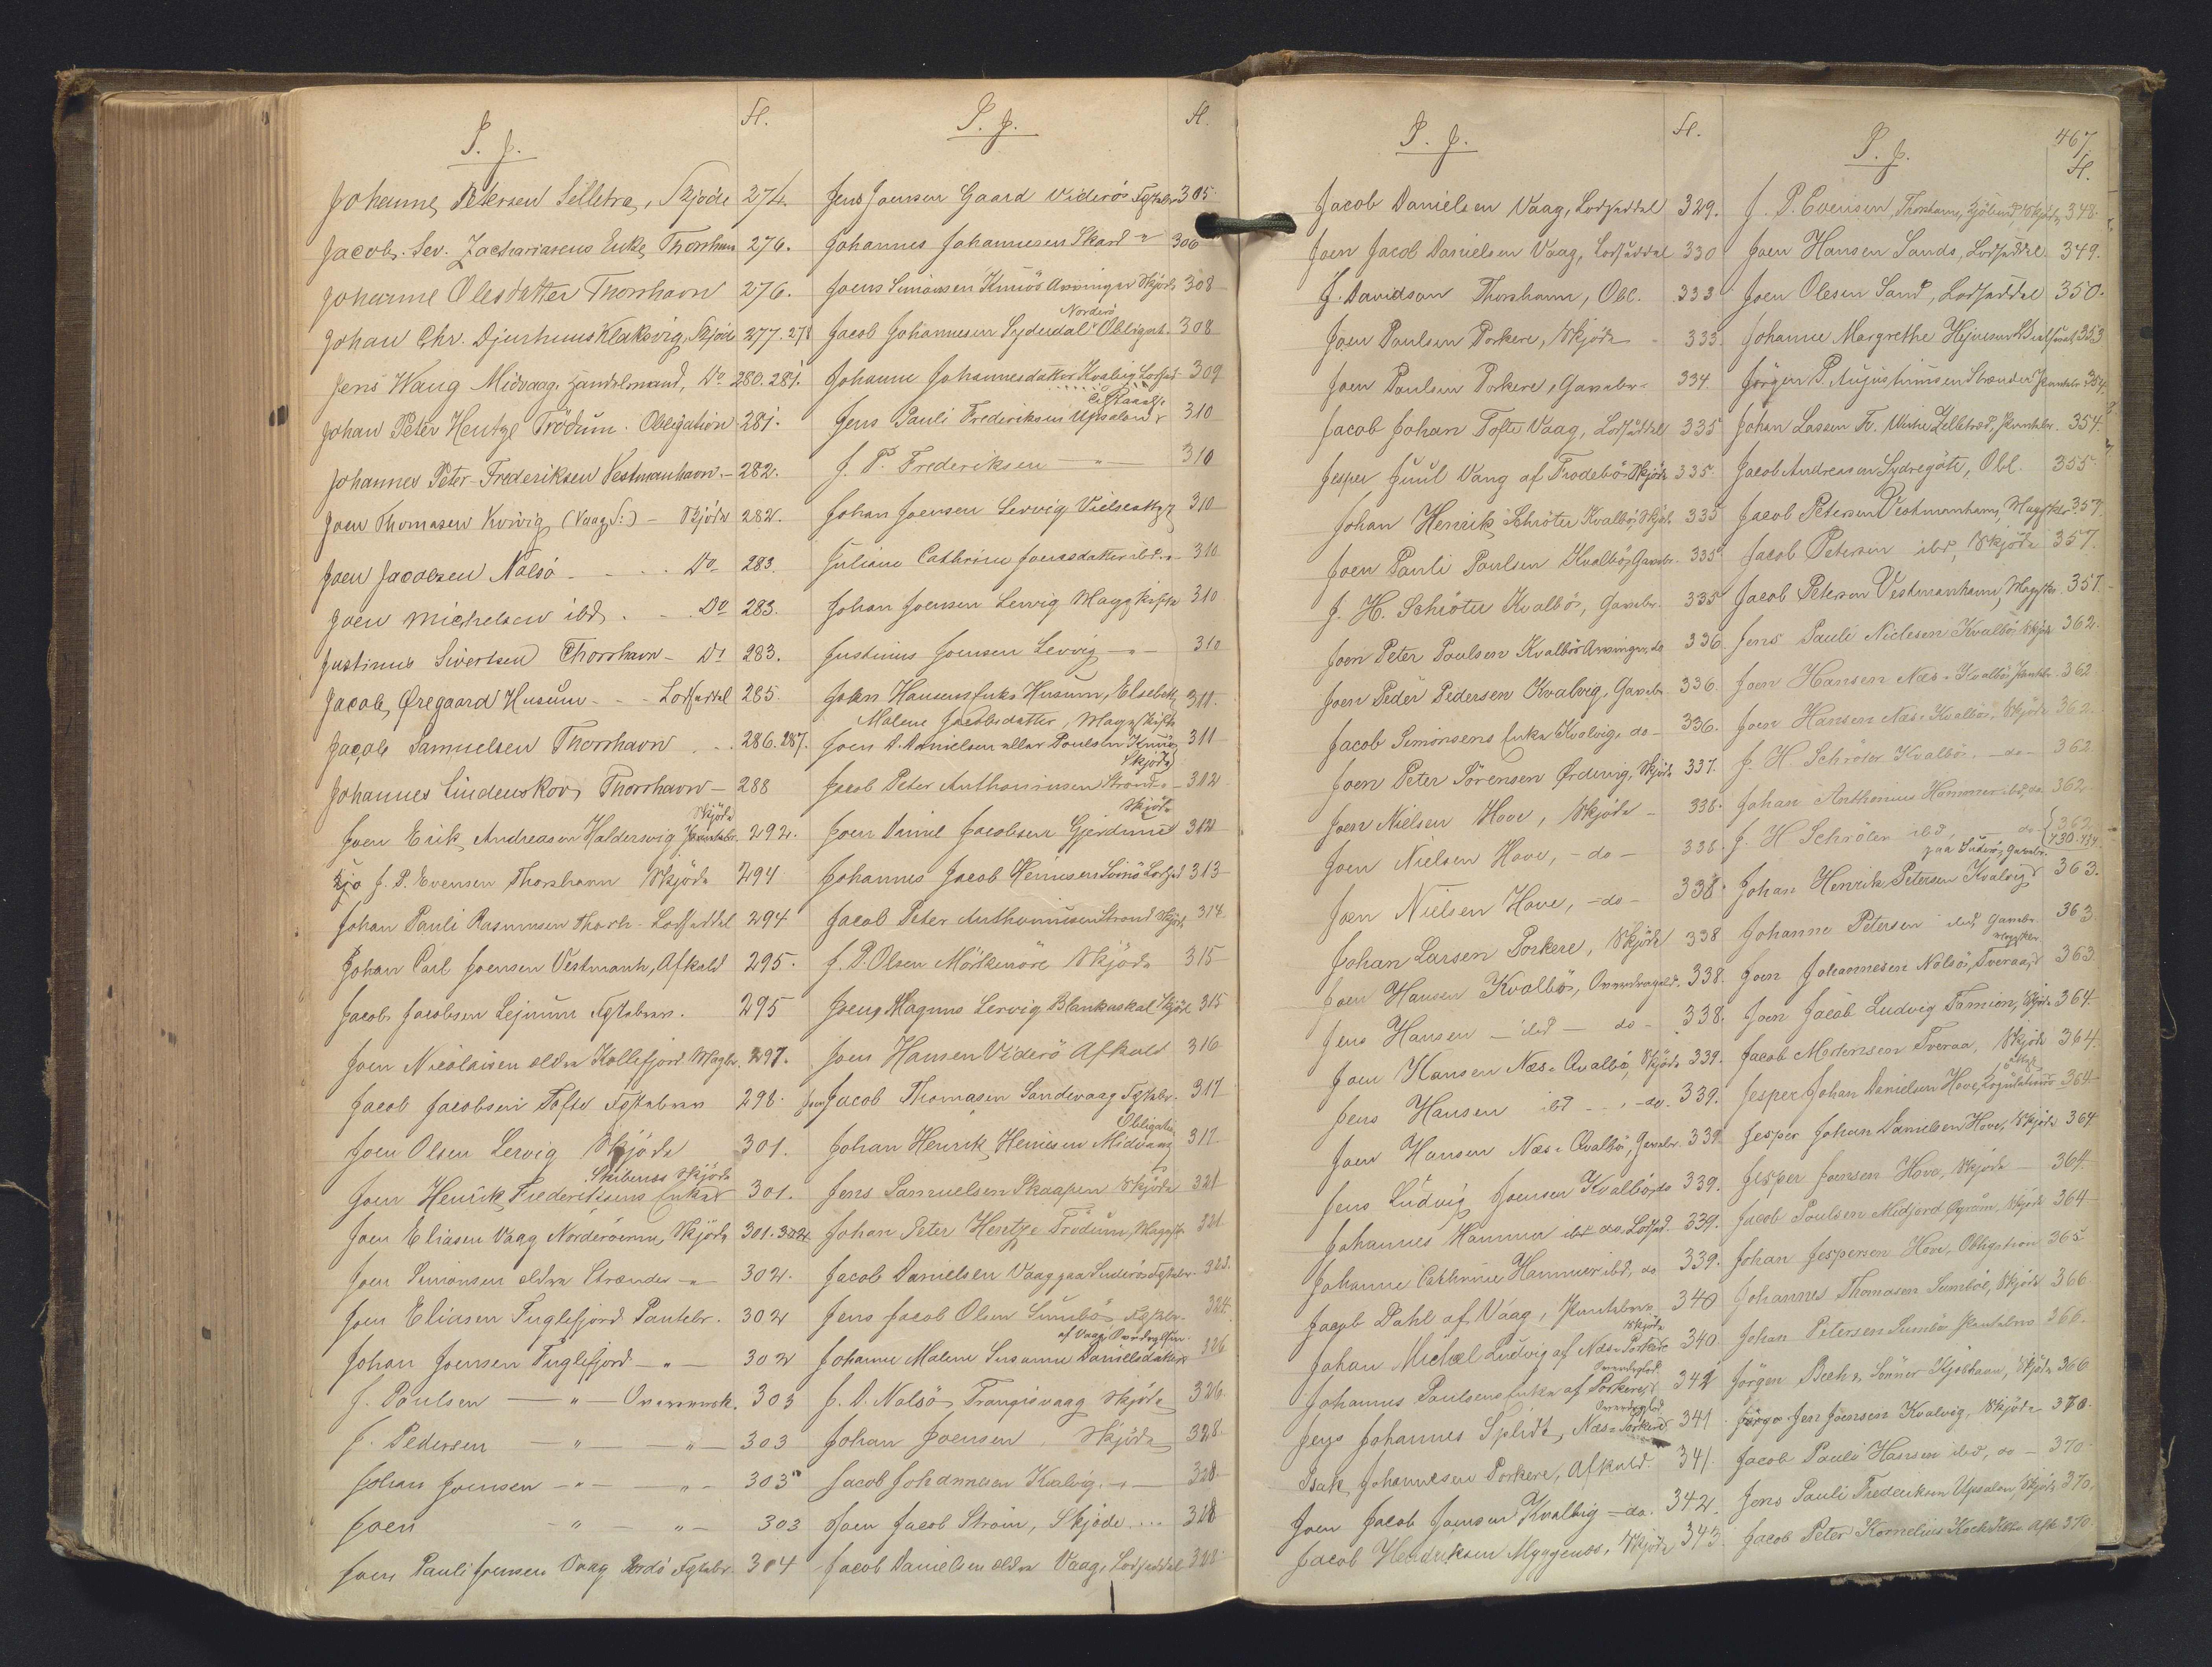 S. J.
Fl.
Johannes Petersen Selletræ, Skjöde 274
Jacob Sev. Zachariasens Enke, Thorshavn 276.
Johanne Olesdatter Thorshavn 276.
Johan Chr. Djurhuus Klaksvig, Skjöde 277. 278
Jens Waag Midvaag, Handelsmand, Do 280. 281.
Johan Peter Hentze Trödum. Obligation 281.
Johannes Peter Frederiksen Vestmanhavn. - 282.
Joen Thomasen Kvivig (Vaag S:) - Skjöde 282.
Joen Jacobsen Nolsö - - - Do 283.
Joen Michelsen ibd. - - Do 283.
Justinus Sivertsen Thorshavn - Do 283.
Jacob Øregaard Husum - - Lodseddel 285.
Jacob Samuelsen Thorshavn . . 286. 287.
Johannes Lindenskov, Thorshavn - 288
Skjöde
Joen Erik Andreasen Haldersvig Pantebr. 292.
J. P. Evensen Thorshavn Skjöde 294
Johan Pauli Rasmussen Thorsh. Lodseddel 294
Johan Carl Joensen Vestmanh, Afkald 295.
Jacob Jacobsen Lejnum Fgtsbrev. 295
Joen Nicolaisen ældre Kollefjord 297.
Jacob Jacobsen Tofte Fgtsbrev 298.
Joen Olsen Lervig Skjöde 301.
Skibenæs Skjöde
Joen Henrik Frederiksens Enke 301.
Joen Eliasen Vaag Norderöerne, Skjöde 301. 302
Joen Simonsen ældre Strænder - " - 302.
Joen Eliasen Fuglefjord Pantebr. 302
Johan Joensen Fuglefjord - " - 302
J. Poulsen - " - 303
J. Pedersen - " - " - 303
Johan Joensen - " - " - 303
Joen - " - " - 303
Joen Pauli Joensen Vaag Bordö Fgtsbr. 304
S. J.
Fl.
Jens Joensen Gaard Viderö Fgtsbr 305
Johannes Johannesen Skard " 306
Joens Simonsen Kunö Skjöde 308
Norderö
Jacob Johannesen Syderdal Obligat. 308
Johanne Johannesdatter Kvalvig Lodsed. 309
Jens Pauli Frederiksen Upsalen 310
J. P. Frederiksen - " - 310
Johan Joensen Lervig 310
Juliane Cathrine Joensdatter ibd. " 310
Johan Joensen Lervig Magskifte 310
Justinus Joensen Lervig - " - 310
Johan Hansens Enke Husum, Elsebeth 311.
Malene Jacobsdatter, Magskifte
Joen D. Danielsen eller Poulsen Kunö 311
Skjöde
Jacob Peter Anthoniussen Strand " - 312
Skjöde
Joen Daniel Jacobsen Gjerdum 312
Johannes Jacob Heinesen Svinö Lodsed 313
Jacob Peter Anthoniussen Strand Skjöde 314
J. P. Olsen Mörkenöre Skjöde 315
Jens Magnus Lervig Blankaskal Skjöde 315
Joen Hansen Viderö Afkald 316
Jacob Thomasen Sandevaag Fgtsbr. 317
Obligation
Johan Henrik Heinesen Midvaag 317
Jens Samuelsen Skaapen Skjöde 321
Johan Peter Hentze Trödum, Magsk. 321.
Jacob Danielsen Vaag paa Suderö Fgtsbr. 323.
Jens Jacob Olsen Sumbö Fgtsbr. 324.
af Vaag
Johanne Malene Susanne Danielsdatter 326
J. D. Nolsö Trangisvaag Skjöde 326.
Johan Joensen . Skjöde 328.
Jacob Johannesen Kvalvig - " - 328
Joen Jacob Strøm, Skjöde . . . 328
Jacob Danielsen ældre Vaag, Lodseddel 328
S. J.
Fl.
Jacob Danielsen Vaag, Lodseddel 329.
Joen Jacob Danielsen Vaag, Lodseddel 330
J. Davidson Thorshavn, Obl. 333
Joen Poulsen Porkere, Skjöde - 333.
Joen Poulsen Porkere, Gavebr. 334
Jacob Johan Tofte Vaag, Lodseddel 335
Jesper Juul Vang af Frodebö Skjöde 335.
Johan Henrik Schröter Kvalbö, Skjöde 335
Joen Pauli Poulsen Kvalbö, Gavebr. 335
J. H. Schröter Kvalbö, Gavebr. 335
Joen Peter Poulsen Kvalbö, do 336
Joen Peder Pedersen Kvalvig, Gavebr. 336.
Jacob Simonsens Enke Kvalvig, do - 336.
Joen Peter Sörensen Ørdevig, Skjöde 337.
Joen Nielsen Hove, Skjöde - 338.
Joen Nielsen Hove, - do - 338.
Joen Nielsen Hove, - do - 338.
Johan Larsen Porkere, Skjöde 338
Joen Hansen Kvalbö, 338.
Jens Hansen - ibd - do - 338.
Joen Hansen Næs-Qvalbö, Skjöde 339.
Jens Hansen ibd - - do. 339.
Joen Hansen Næs-Qvalbö, Gavebr. 339
Jens Ludvig Joensen Kvalbö, do 339.
Johannes Hammer ibd do. Lodsed. 339.
Johanne Cathrine Hammer ibd, do 339.
Jacob Dahl af Vaag, Pantebrev 340
Skjöde
Johan Michael Ludvig af Næs-Porkere 340.
Johannes Poulsens Enke af Porkere 342
Jens Johannes Splidt, Næs-Porkere 341
Isak Johannesen Porkere, Afkald. 341.
Joen Jacob Joensen Kvalvig - do. 342.
Jacob Hendriksen Myggenæs, Skjöde 343
467.
S. J.
Fl.
J. P. Evensen, Thorshavn, 348.
Joen Hansen Sands, Lodseddel 349.
Joen Olesen Sand, Lodseddel 350.
Johanne Margrethe Hejnesen 353
Jörgen P. Augustinussen Strænder Pantebr. 354.
Johan Lassen Fr. Weihe Selletræd, Pantebr. 354.
Jacob Andreasen Sydregöte, Obl. 355
Jacob Petersen Vestmanhavn, Magskr. 357.
Jacob Petersen ibd, Skjöde 357.
Jacob Petersen Vestmanhavn, Magskr. 357.
Jens Pauli Niclesen Kvalbö Skjöde 362.
Joen Hansen Næs-Kvalbö Pantebr. 362
Joen Hansen Næs-Kvalbö, Skjöde 362
J. H. Schröter Kvalbö, - do - 362
Johan Anthonius Hammer ibd do 362
J. H. Schröter ibd, do { 362. 430. 434
paa Suderö, Gavebr.
Johan Henrik Petersen Kvalvig 363.
Johanne Petersen ibd, Gavebr. 363
Magskr.
Joen Johannesen Nolsö, Tveraa 363
Joen Jacob Ludvig Famien, Skjöde 364.
Jacob Mortensen Tveraa, Skjöde 364.
Jesper Johan Danielsen Hove, 364
Jesper Johan Danielsen Hove, Skjöde 364
Jesper Joensen Hove, Skjöde - 364
Jacob Poulsen Midjord Øyrum, Skjöde 364
Johan Jespersen Hove, Obligation 365
Johannes Thomasen Sumböe, Skjöde 366
Johan Petersen Sumbö Pantebrev 366.
Jörgen Bechs Sönner Kjöbhavn, Skjöde 366
Jen Joensen Kvalvig, Skjöde 370.
Jacob Pauli Hansen ibd, do - 370
Jens Pauli Frederiksen Upsalen, Skjöde 370,
Jacob Peter Kornelius Kock Afk. 370.